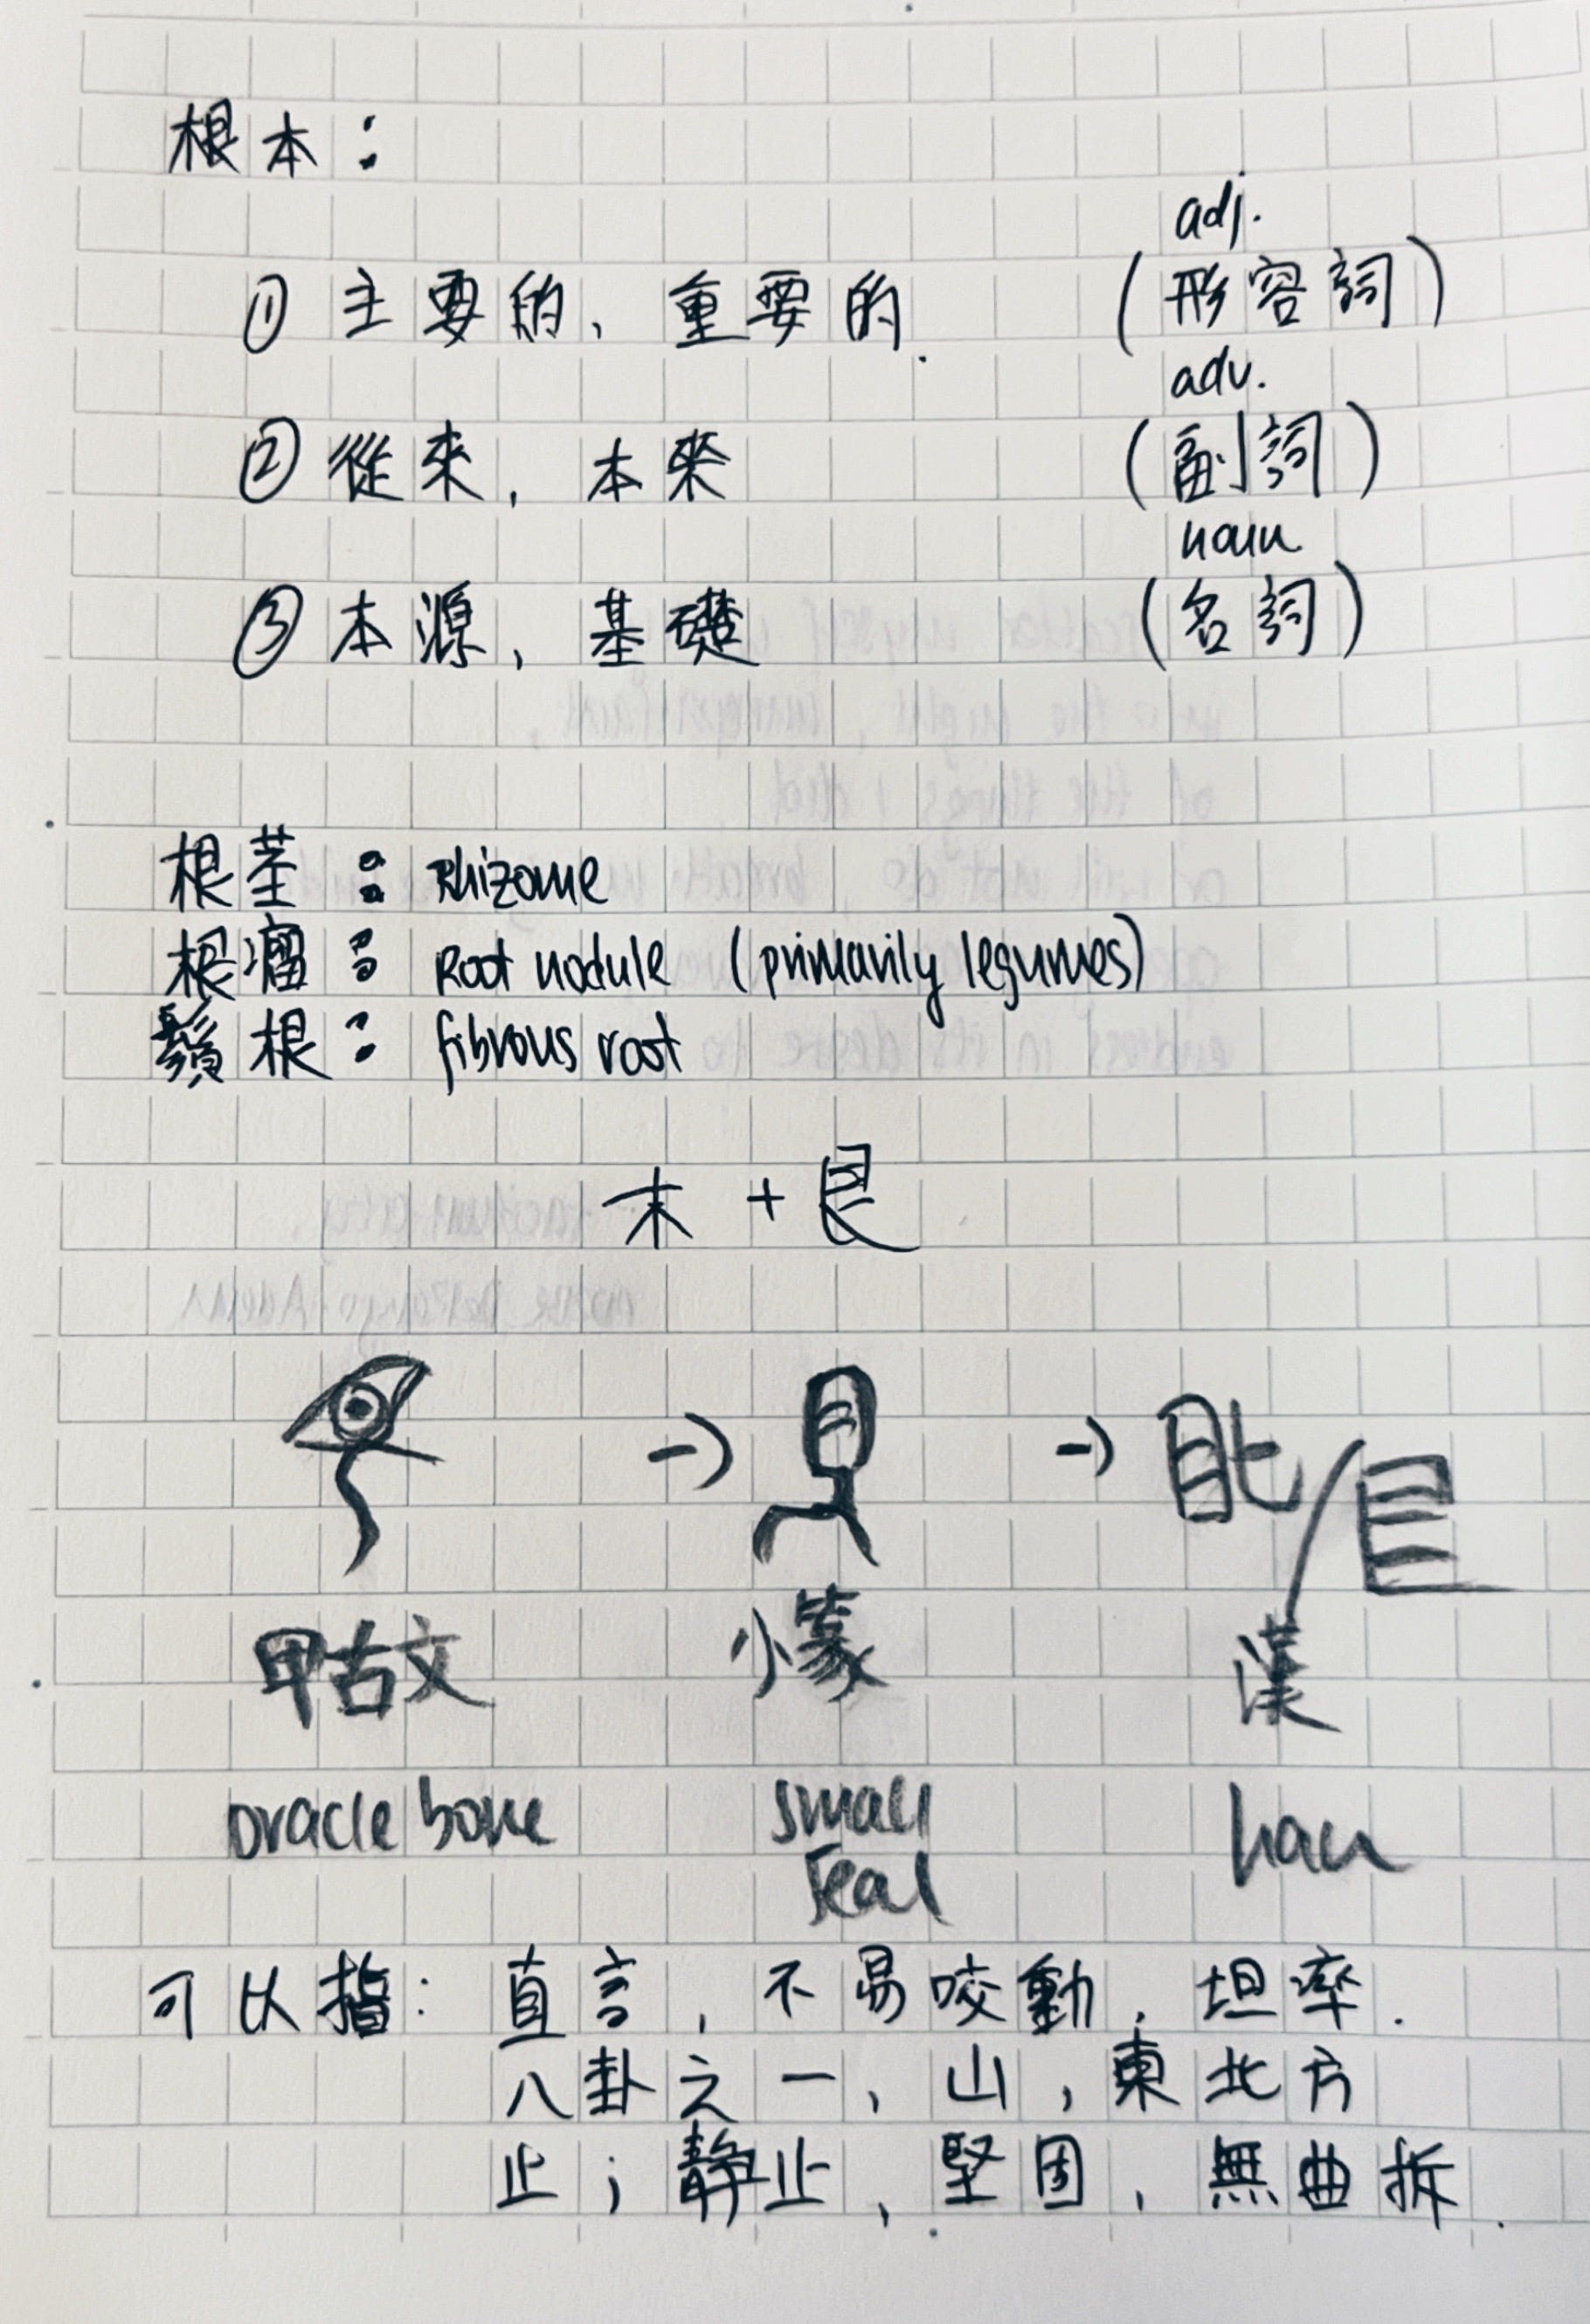 根本：
adj.
① 主要的、重要的. (形容詞)
adv.
② 從來, 本來 (副詞)
noun
③ 本源, 基礎 (名詞)
根莖：Rhizome
根瘤：Root nodule (primarily legumes)
鬚根：fibrous root
木 + 艮
→ → 皀匕/艮
甲古文 小篆 漢
oracle bone small han
seal
可以指：直言, 不易咬動, 坦率.
八卦之一, 山, 東北方
止；靜止, 堅固, 無曲拆.